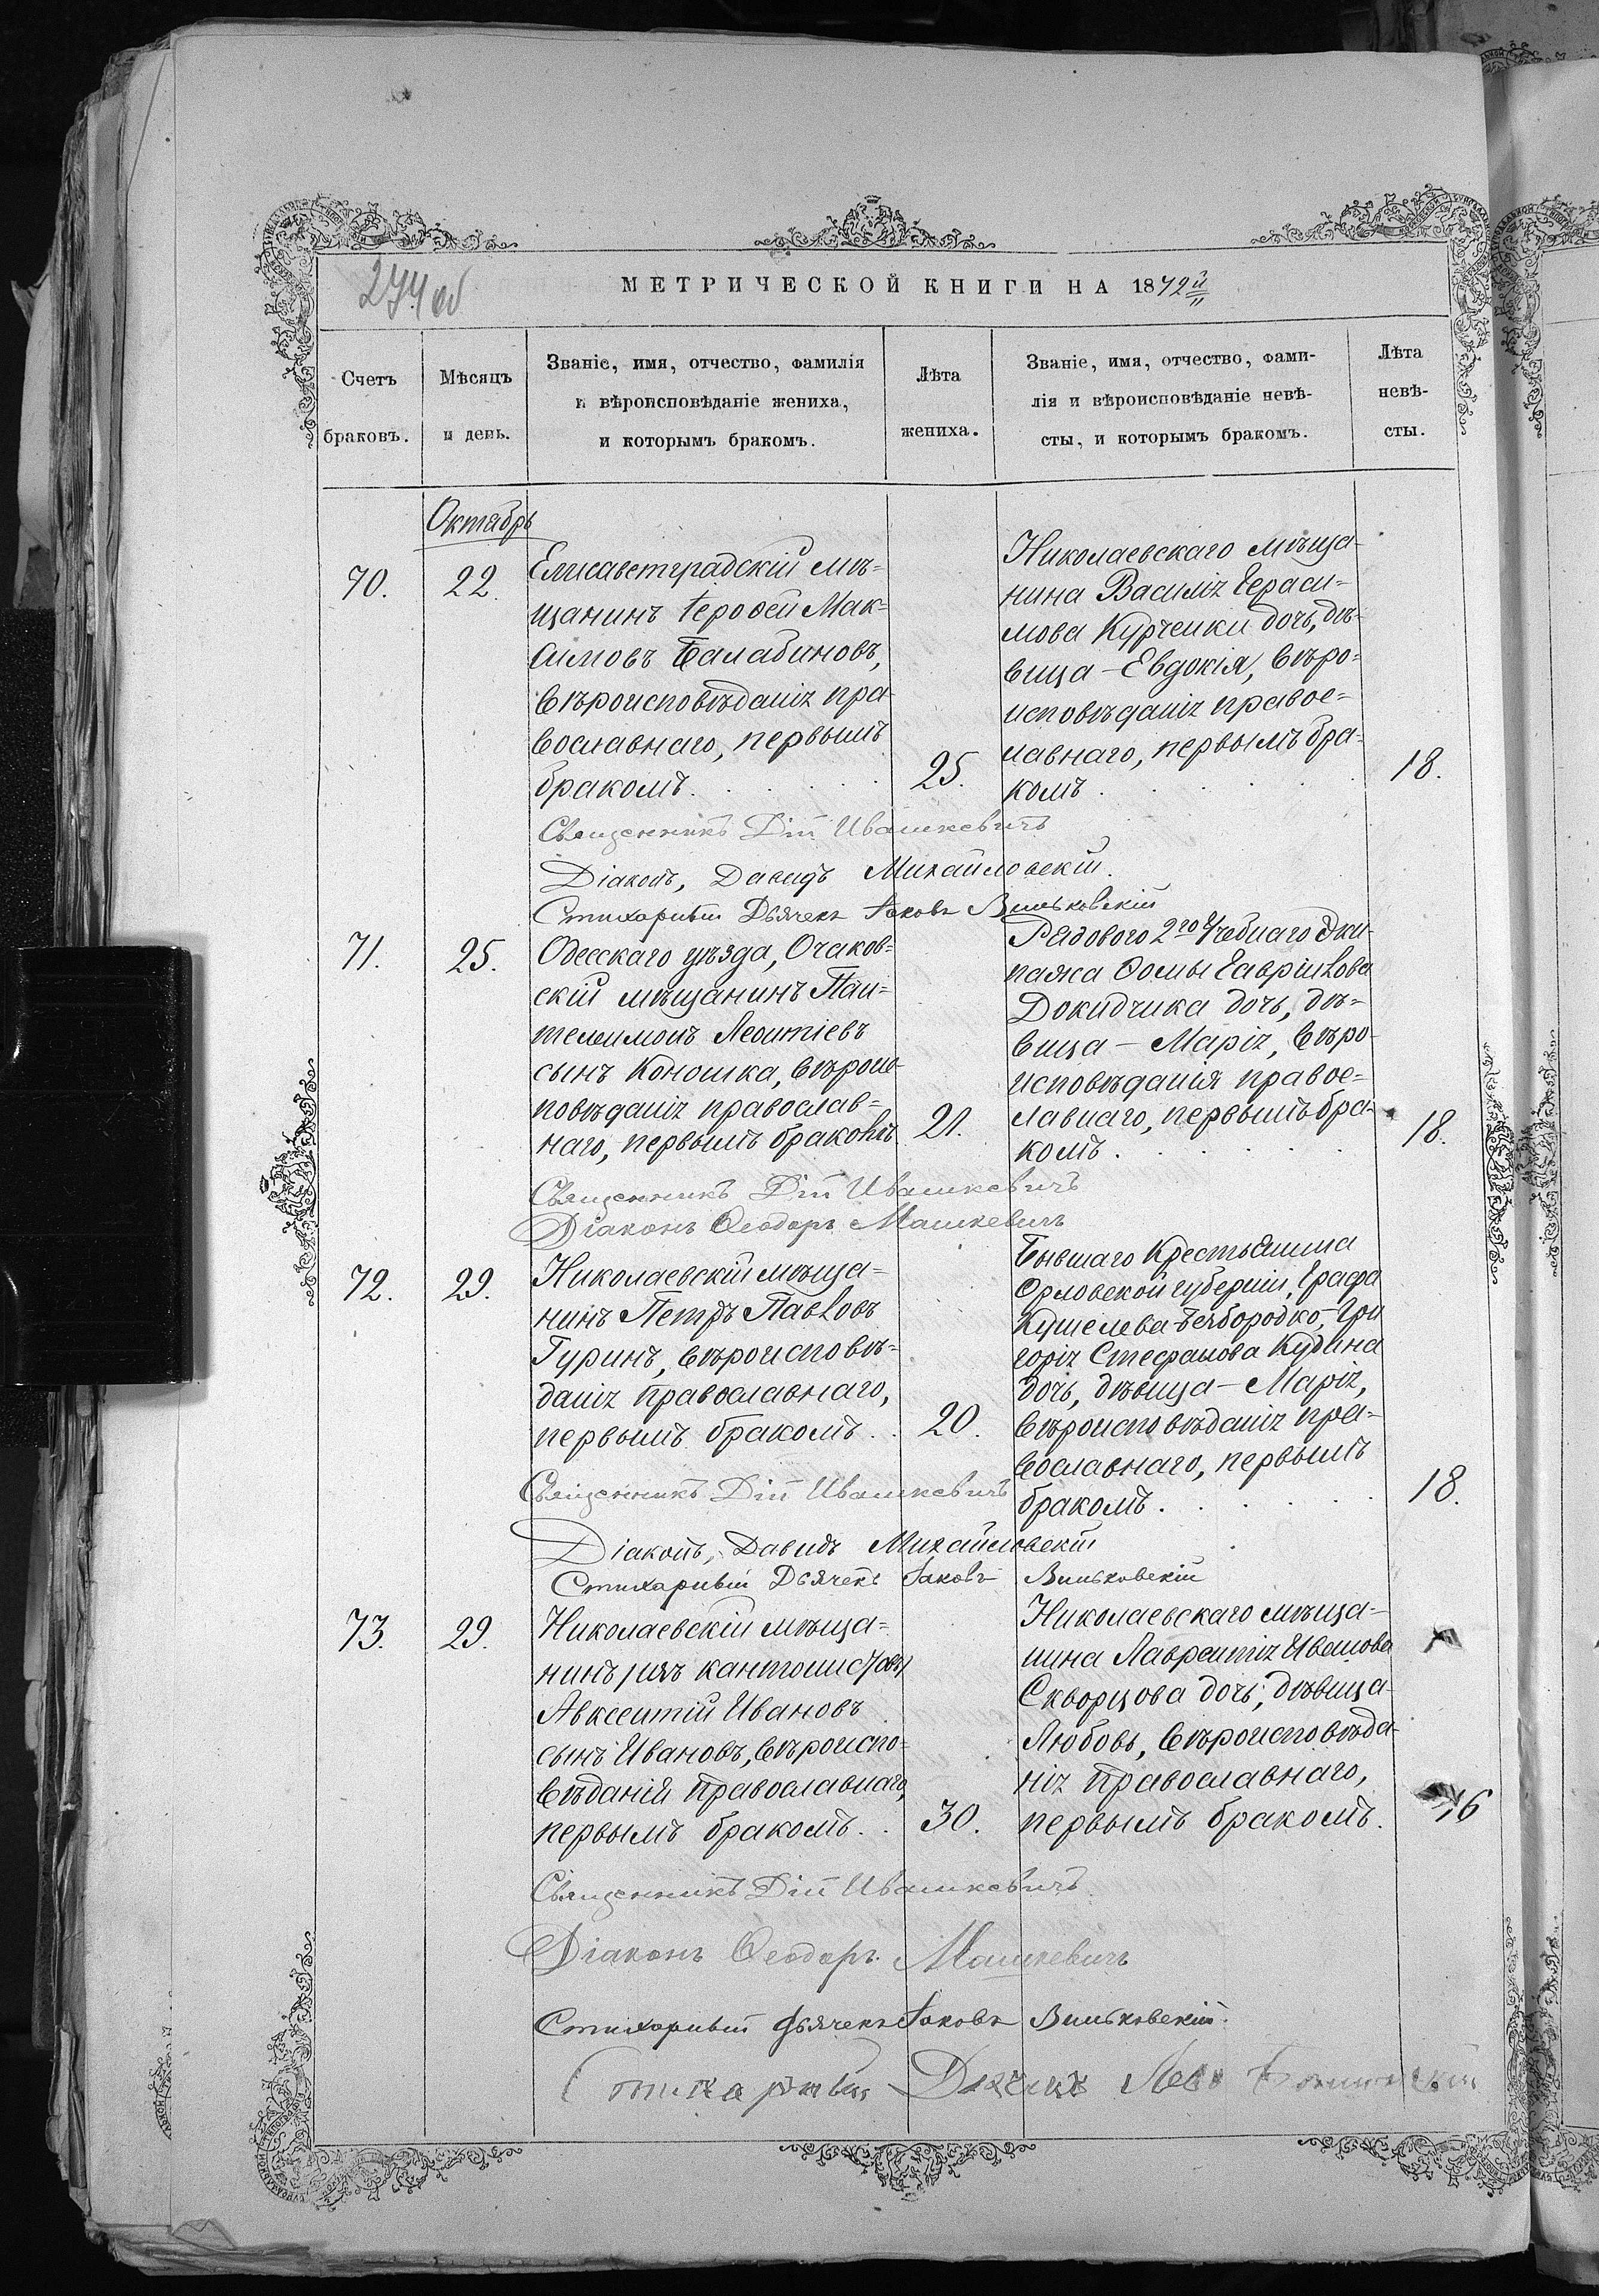 277 об
МЕТРИЧЕСКОЙ КНИГИ НА 1872й
Счетъ
браковъ.
Мѣсяцъ
и день.
Званіе, имя, отчество, фамилія
и вѣроисповѣданіе жениха,
и которымъ бракомъ.
Лѣта
жениха.
Званіе, имя, отчество, фами-
лія и вѣроисповѣданіе невѣ-
сты, и которымъ бракомъ.
Лѣта
невѣ-
сты.
Октябрь
70.
22.
Елисаветградскій мѣ=
щанинъ Іероѳей Мак=
симовъ Балабановъ,
вѣроисповѣданія пра-
вославнаго, первымъ
бракомъ.
25.
Николаевскаго мѣща-
нина Василія Гераси-
мова Курченки дочь, дѣ-
вица - Евдокія, вѣро=
исповѣданія правос=
лавнаго, первымъ бра-
комъ
18.
Священникъ Дій Ивашкевичъ
Діаконъ, Давидъ Михайловскій.
Стихарный Дьячекъ Іаковъ Виньковскій
71.
25.
Одесскаго уѣзда, Очаков=
скій мѣщанинъ Пан=
телеимонъ Леонтіевъ
сынъ Коношка, вѣроис-
повѣданія православ=
наго, первымъ бракомъ
21.
Рядового 2го Учебнаго Эки-
пажа Ѳомы Гаврилова
Докидчика дочь, дѣ=
вица - Марія, вѣро-
исповѣданія правос=
лавнаго, первымъ бра-
комъ.
18.
Священникъ Дій Ивашкевичъ
Діаконъ Ѳеодоръ Машкевичъ
72.
29.
Николаевскій мѣща=
нинъ Петръ Павловъ
Гуринъ, вѣроисповѣ=
данія православнаго,
первымъ бракомъ.
20.
Бывшаго Крестьянина
Орловской губерніи, Графа
Кушелева-Безбородко, Гри
горія Стефанова Кудина
дочь, дѣвица - Марія,
вѣроисповѣданія пра=
вославнаго, первымъ
бракомъ.
18.
Священникъ Дій Ивашкевичъ
Діаконъ, Давидъ Михайловскій
Стихарный Дьячекъ Іаковъ Виньковскій
73.
29.
Николаевскій мѣща=
нинъ /изъ кантонистовъ/
Авксентій Ивановъ
сынъ Ивановъ, вѣроиспо=
вѣданія православнаго,
первымъ бракомъ.
30.
Николаевскаго мѣща-
нина Лаврентія Иванова
Скворцова дочь, дѣвица-
Любовь, вѣроисповѣда-
нія православнаго,
первымъ бракомъ.
16
Священникъ Дій Ивашкевичъ
Діаконъ Ѳеодоръ Машкевичъ
Стихарный дьячекъ Іаковъ Виньковскій.
Стихарный Дьячекъ